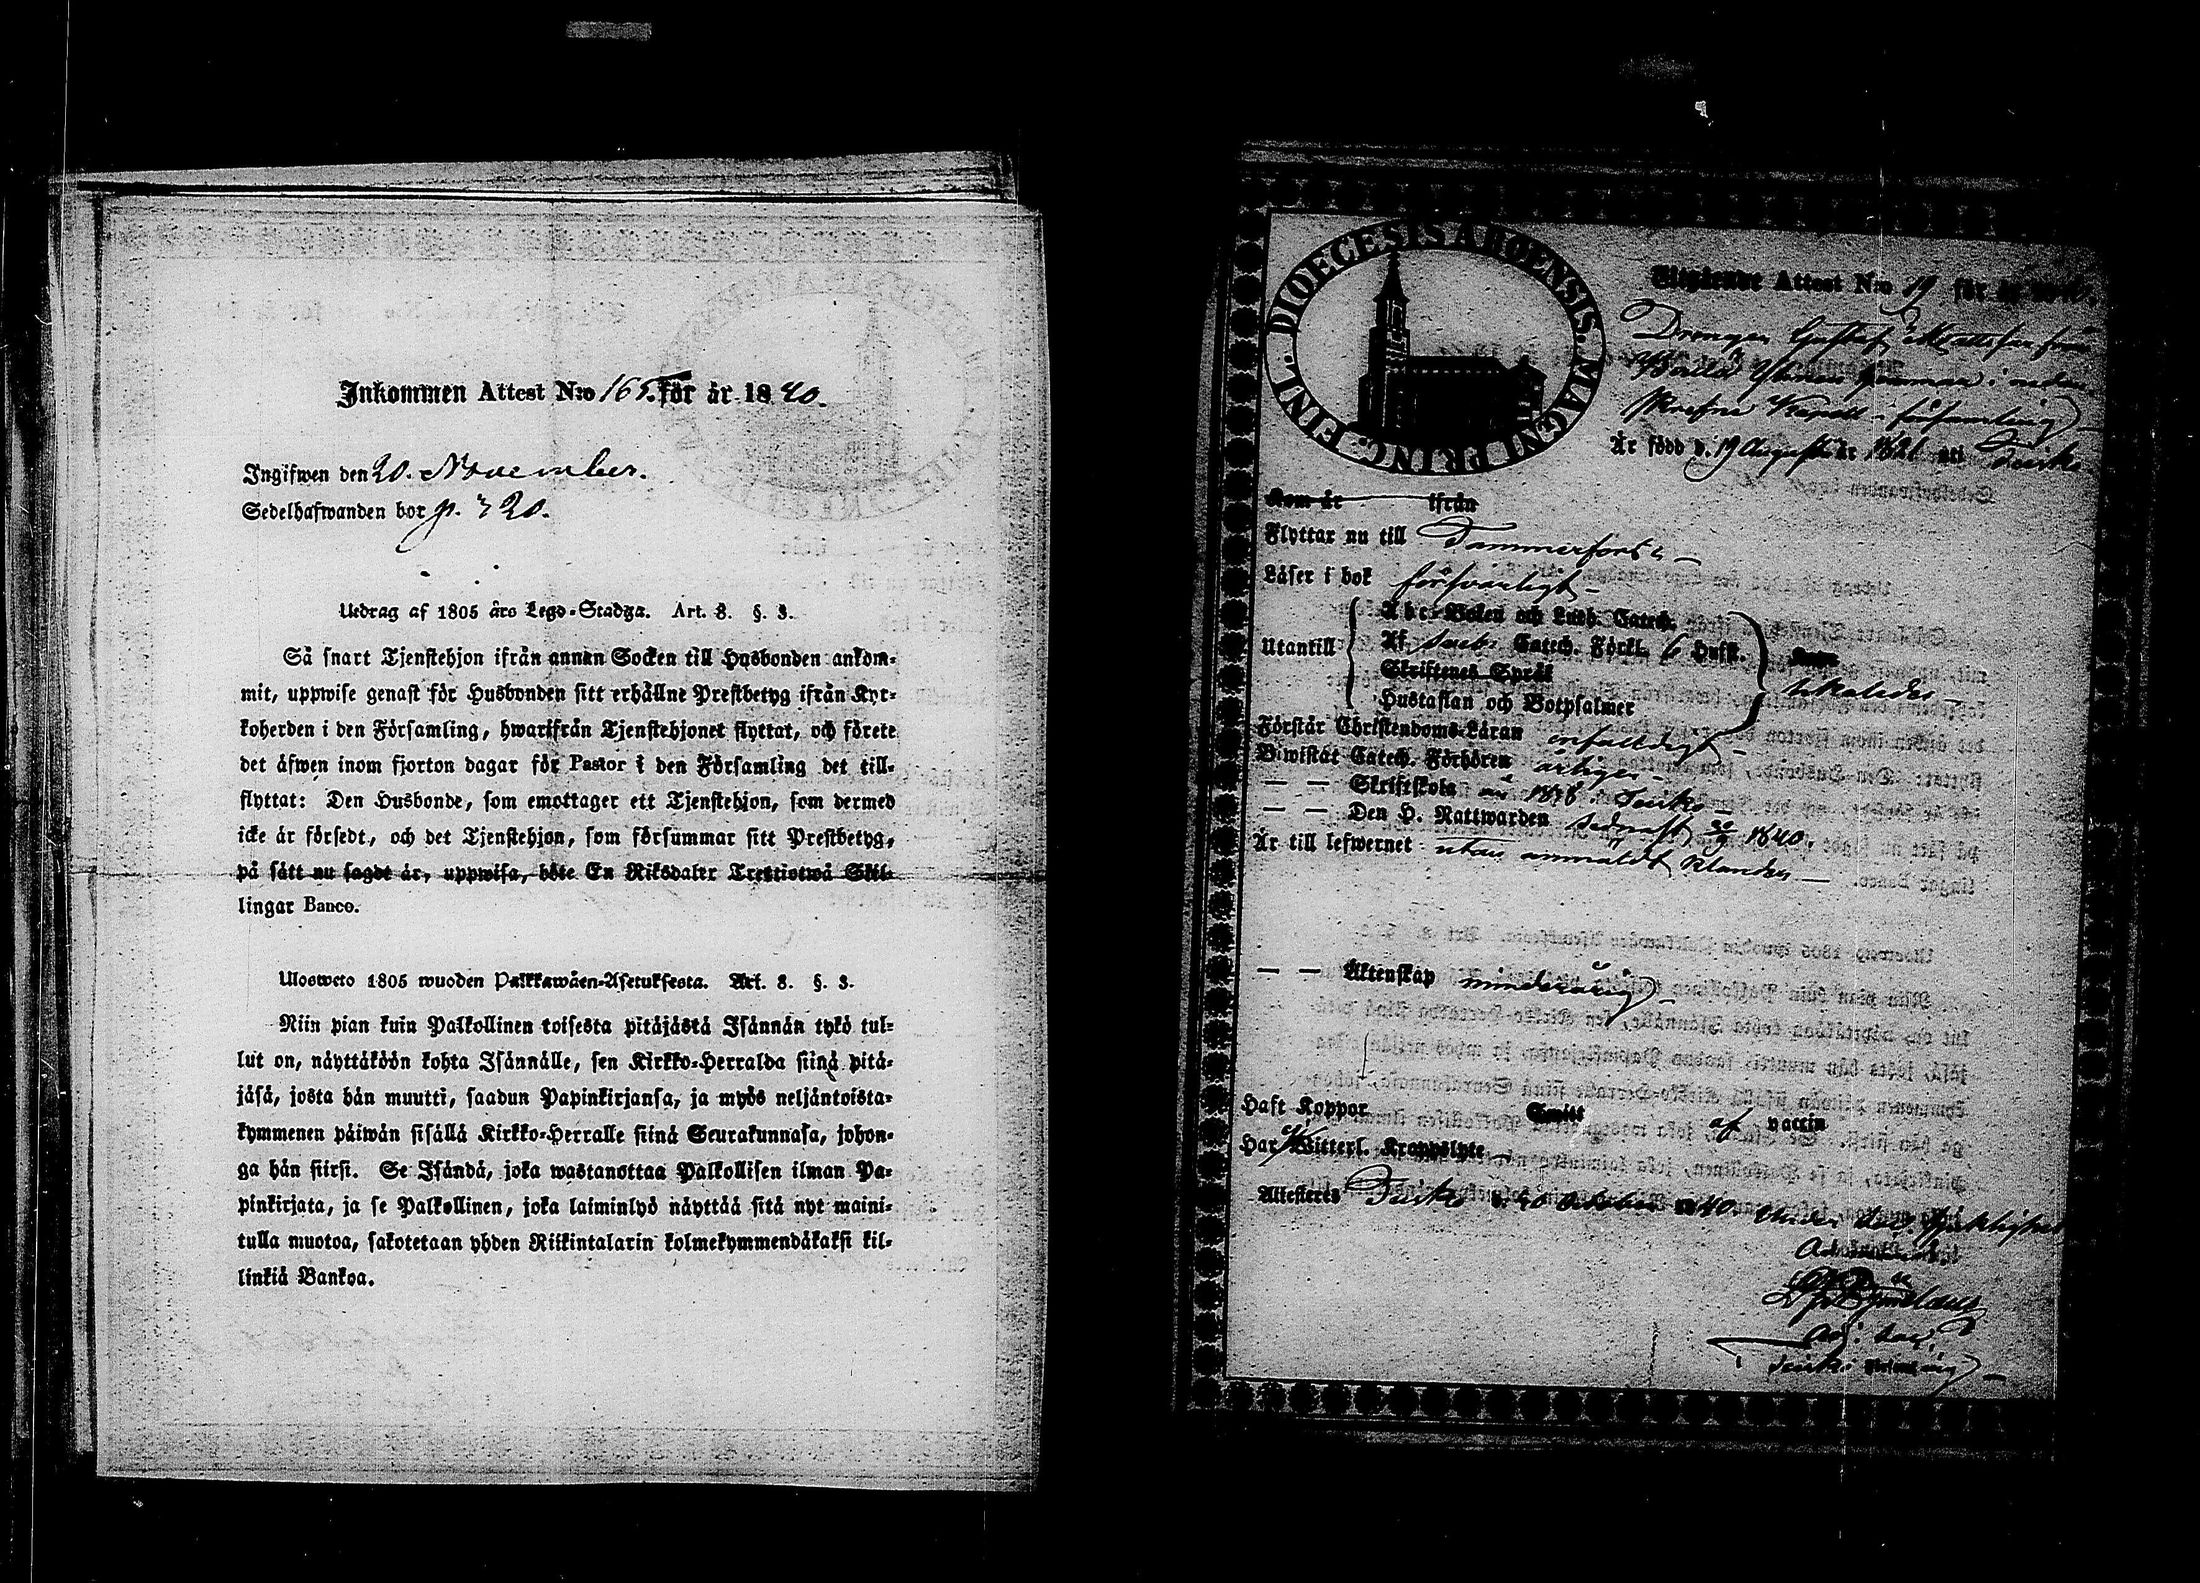 Inkommen Attest N:o 165. för år 1840.
Ingifwen den 20. November.
Sedelhafwanden bor p. 720.
Utdrag af 1805 års Lego-Stadga. Art. 8. §. 3.
Så snart Tjenstehjon ifrån annan Socken till Husbonden ankom-
mit, uppwise genast för Husbonden sitt erhållne Prestbetyg ifrån Kyr-
koherden i den Församling, hwarifrån Tjenstehjonet flyttat, och förete
det äfwen inom fjorton dagar för Pastor i den Församling det till-
flyttat: Den Husbonde, som emottager ett Tjenstehjon, som dermed
icke är försedt, och det Tjenstehjon, som försummar sitt Prestbetyg,
på sätt nu sagdt är, uppwisa, böte En Riksdaler Trettiotwå Skil-
lingar Banco.
Ulosweto 1805 wuoden Palkkawäen-Asetuksesta. Art. 8. §. 3.
Niin pian kuin Palkollinen toisesta pitäjästä Isännän tykö tul-
lut on, näyttäköön kohta Isännälle, sen Kirkko-Herralda siinä pitä-
jäsä, josta hän muutti, saadun Papinkirjansa, ja myös neljäntoista-
kymmenen päiwän sisällä Kirkko-Herralle siinä Seurakunnasa, johon-
ga hän siirsi. Se Isändä, joka wastanottaa Palkollisen ilman Pa-
pinkirjata, ja se Palkollinen, joka laiminlyö näyttää sitä nyt maini-
tulla muotoa, sakotetaan yhden Riikintalarin kolmekymmendäkaksi kil-
linkiä Bankoa.
FINL. DIOECESIS ABOENSIS. MAGNI PRINC.
Utgående Attest N:o 19 för år
Drengen Gustaf Mattsson från
i neden
skrefne Kapell i församling
Är född d. 19 Augusti år 1821 uti
Kom år ifrån
Flyttar nu till Tammerfors
Läser i bok försvarligt
Utantill
Abc-Boken och Luth. Catech.
Af Catech. Förkl. 6 Hufst.
Skriftenes Språk
Hustaflan och Botpsalmer
Förstår Christendoms-Läran enfalldigt
Biwistat Catech. Förhören årligen
— — Skriftskola år
— — Den H. Nattwarden sednast 1840.
Är till lefwernet utan anmäldt klander
— — Äktenskap minderårig
Haft Koppor Smitt af vaccin
Har Witterl. Kroppslyte
Attesteras d. October 1840. Under
Adj.